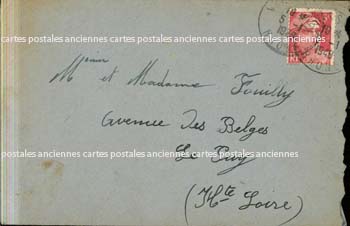 cartes postales anciennes cartes postales anciennes cartes postales anciennes
Monsieur et Madame Fouilly
avenue des Belges
cartes postales anciennes cartes postales anciennes cartes postales anciennes
Le Puy
(Hte Loire)